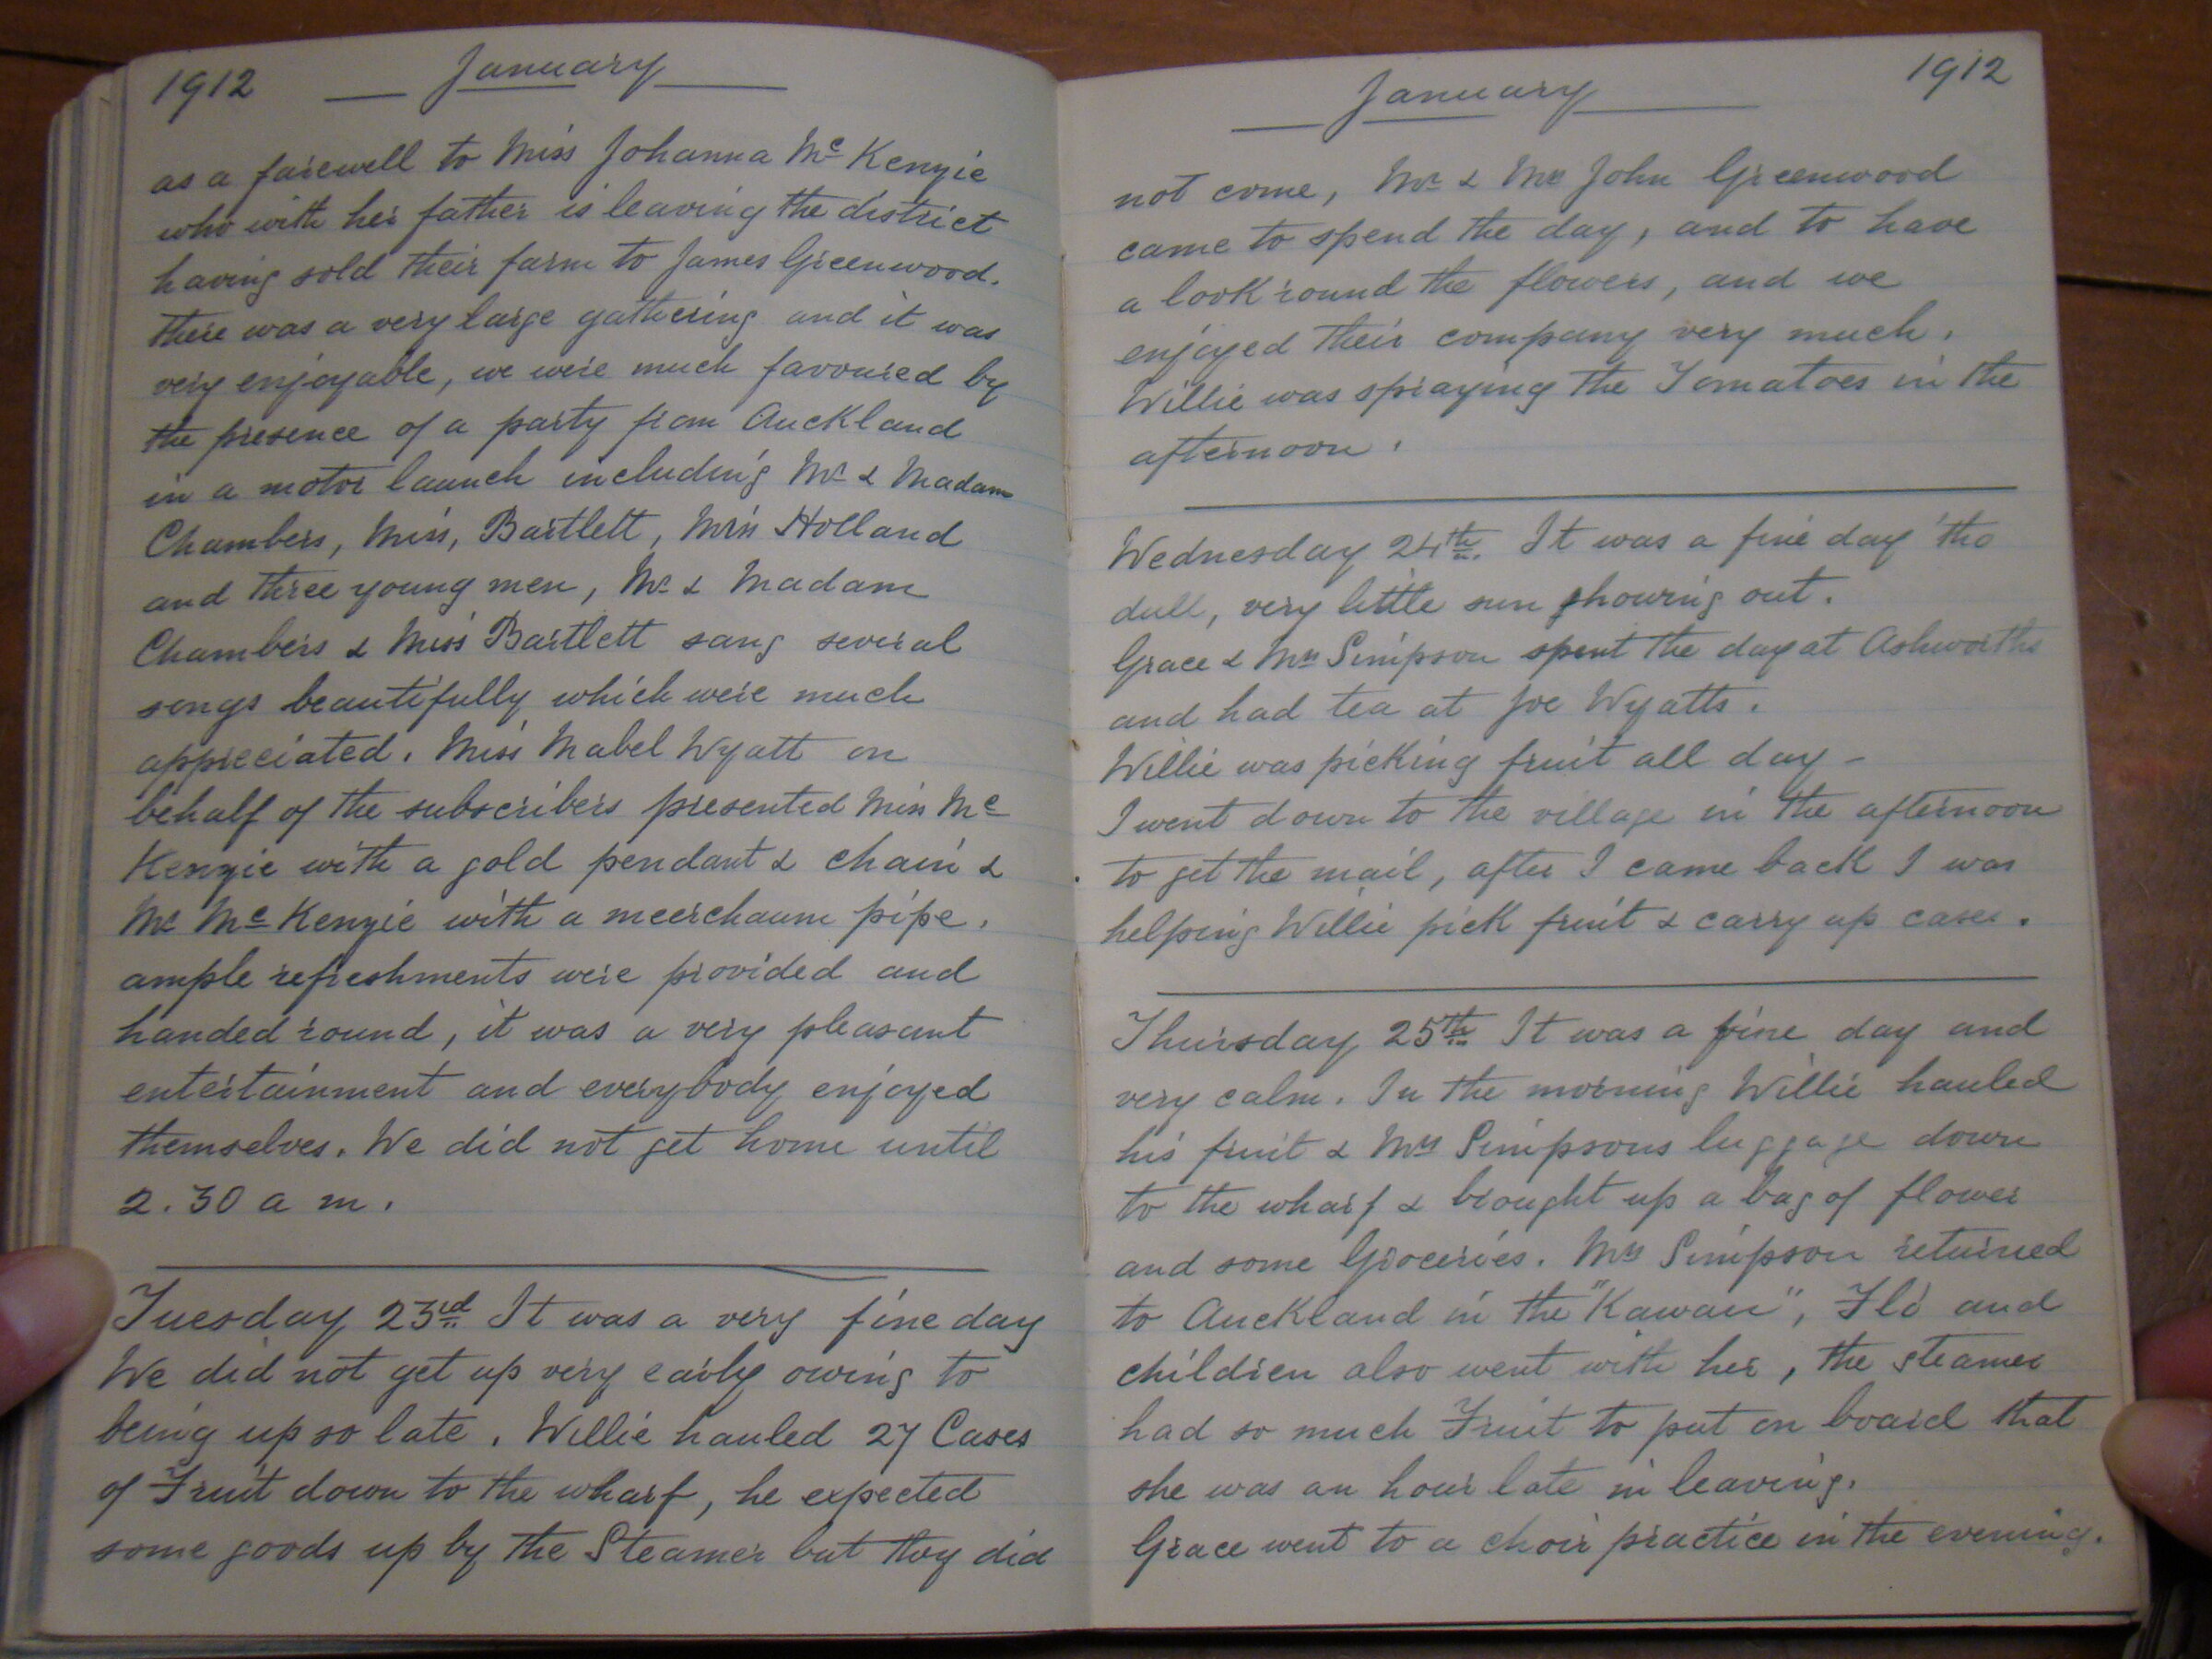 1912 January
as a farewell to Miss Johanna McKenzie
who with her father is leaving the district
having sold their farm to James Greenwood.
there was a very large gathering and it was
very enjoyable, we were much favoured by
the presence of a party from Auckland
in a motor launch including Mr & Madam
Chambers, Miss, Bartlett, Miss Holland
and three young men, Mr & Madam
Chambers & Miss Bartlett sang several
songs beautifully which were much
appreciated. Miss Mabel Wyatt on
behalf of the subscribers presented Miss Mc
Kenzie with a gold pendant & chain &
Mr McKenzie with a meerchaum pipe.
ample refreshments were provided and
handed round, it was a very pleasant
entertainment and everybody enjoyed
themselves. We did not get home until
2.30 a m.
Tuesday 23rd It was a very fine day
We did not get up very early owing to
being up so late. Willie hauled 27 Cases
of Fruit down to the wharf, he expected
some goods up by the Steamer but they did
January 1912
not come, Mr & Mrs John Greenwood
came to spend the day, and to have
a look round the flowers, and we
enjoyed their company very much.
Willie was spraying the Tomatoes in the
afternoon.
Wednesday 24th. It was a fine day tho
dull, very little sun showing out.
Grace & Mrs Simpson spent the day at Ashworths
and had tea at Joe Wyatts.
Willie was picking fruit all day -
I went down to the village in the afternoon
to get the mail, after I came back I was
helping Willie pick fruit & carry up cases.
Thursday 25th It was a fine day and
very calm. In the morning Willie hauled
his fruit & Mrs Simpsons luggage down
to the wharf & brought up a bag of flower
and some Groceries. Mrs Simpson returned
to Auckland in the "Kawau", Flo and
children also went with her, the steamer
had so much Fruit to put on board that
she was an hour late in leaving.
Grace went to a choir practice in the evening.